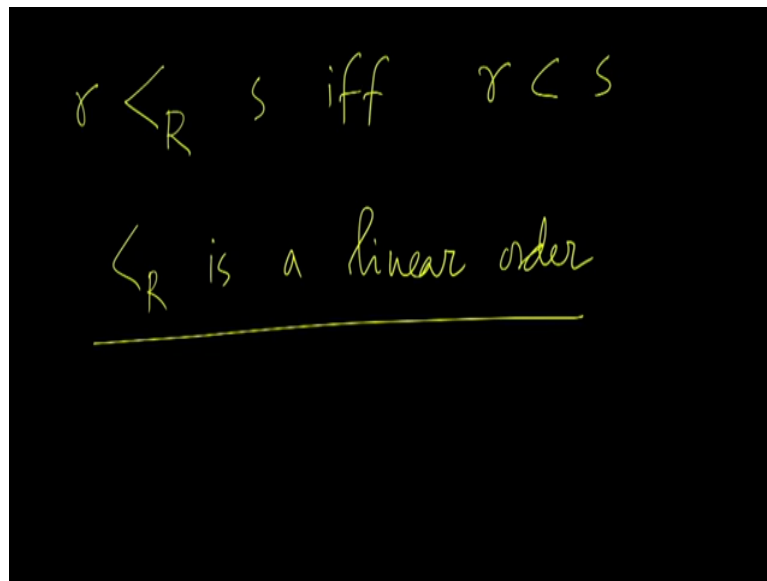 r <_R s iff r ⊂ s
<_R is a linear order